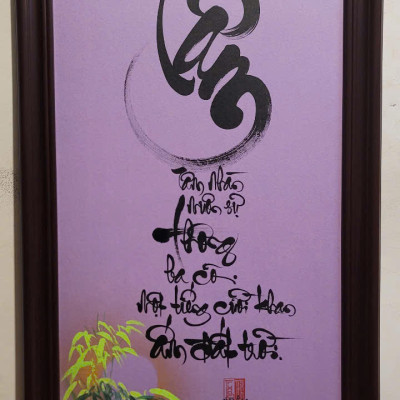 Tâm
Tâm nhàn
muôn sự
thông
ba cõi.
Một tiếng cười khan
ấm đất trời.